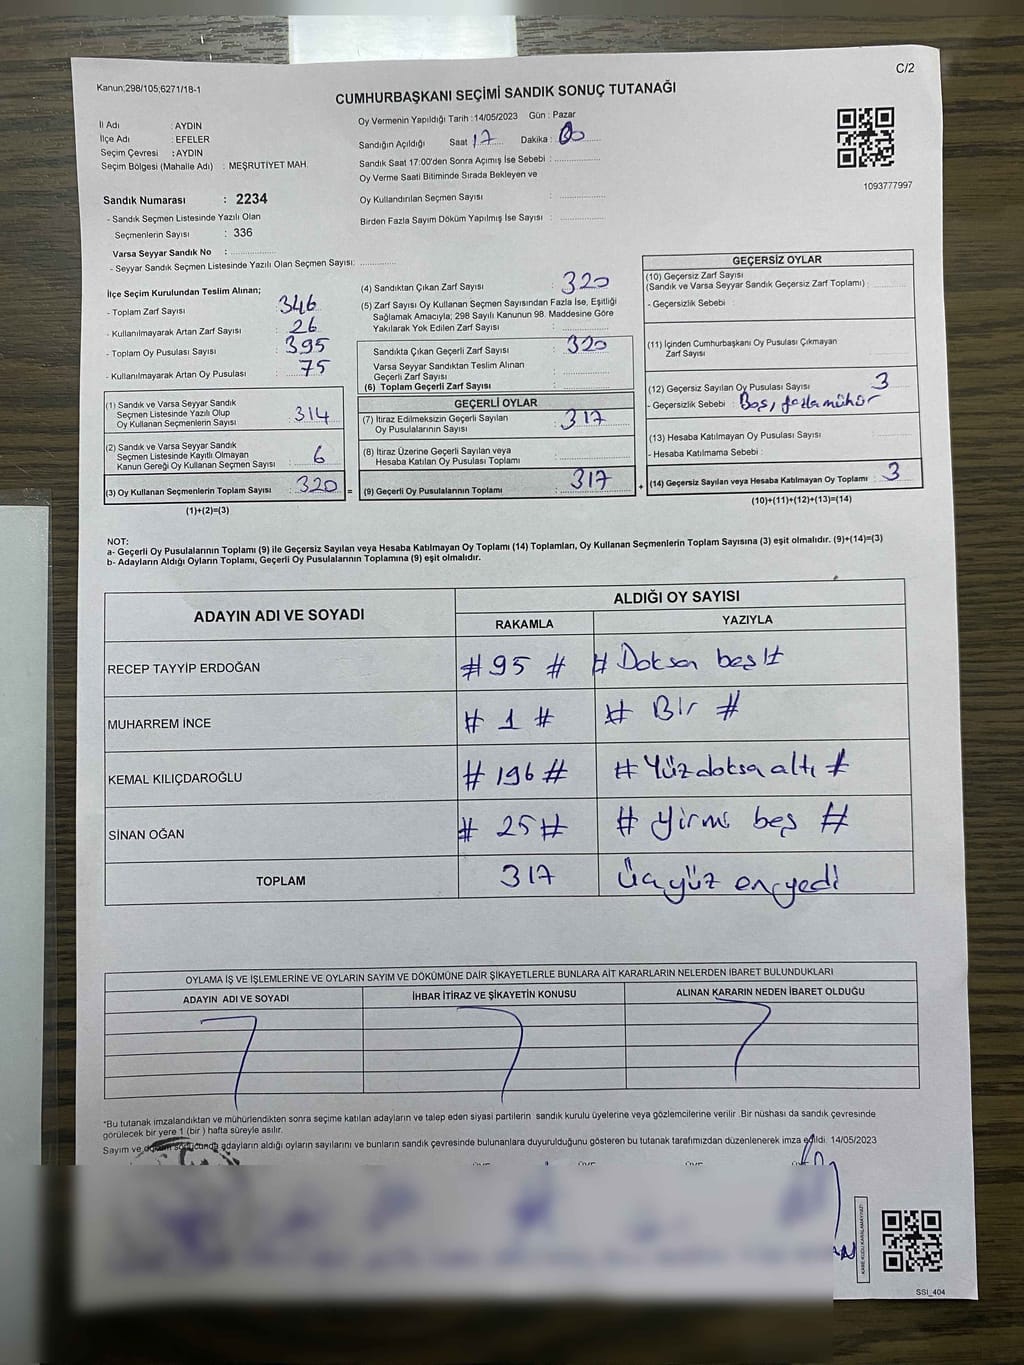 C/2
Kanun;298/105;6271/18-1
CUMHURBAŞKANI SEÇİMİ SANDIK SONUÇ TUTANAĞI
İl Adı : AYDIN
İlçe Adı : EFELER
Seçim Çevresi : AYDIN
Seçim Bölgesi (Mahalle Adı) : MEŞRUTİYET MAH.
Oy Vermenin Yapıldığı Tarih :14/05/2023 Gün : Pazar
Sandığın Açıldığı Saat 17 Dakika : 00
Sandık Saat 17:00'den Sonra Açımış İse Sebebi :
Oy Verme Saati Bitiminde Sırada Bekleyen ve
Oy Kullandırılan Seçmen Sayısı :
Birden Fazla Sayım Döküm Yapılmış İse Sayısı :
1093777997
Sandık Numarası : 2234
- Sandık Seçmen Listesinde Yazılı Olan
Seçmenlerin Sayısı : 336
Varsa Seyyar Sandık No :
- Seyyar Sandık Seçmen Listesinde Yazılı Olan Seçmen Sayısı:
İlçe Seçim Kurulundan Teslim Alınan;
- Toplam Zarf Sayısı : 346
- Kullanılmayarak Artan Zarf Sayısı : 26
- Toplam Oy Pusulası Sayısı : 395
- Kullanılmayarak Artan Oy Pusulası : 75
(1) Sandık ve Varsa Seyyar Sandık
Seçmen Listesinde Yazılı Olup
Oy Kullanan Seçmenlerin Sayısı : 314
(2) Sandık ve Varsa Seyyar Sandık
Seçmen Listesinde Kayıtlı Olmayan
Kanun Gereği Oy Kullanan Seçmen Sayısı : 6
(3) Oy Kullanan Seçmenlerin Toplam Sayısı : 320 =
(1)+(2)=(3)
(4) Sandıktan Çıkan Zarf Sayısı : 320
(5) Zarf Sayısı Oy Kullanan Seçmen Sayısından Fazla İse, Eşitliği
Sağlamak Amacıyla; 298 Sayılı Kanunun 98. Maddesine Göre
Yakılarak Yok Edilen Zarf Sayısı :
Sandıkta Çıkan Geçerli Zarf Sayısı : 320
Varsa Seyyar Sandıktan Teslim Alınan
Geçerli Zarf Sayısı :
(6) Toplam Geçerli Zarf Sayısı :
GEÇERLİ OYLAR
(7) İtiraz Edilmeksizin Geçerli Sayılan
Oy Pusulalarının Sayısı : 317
(8) İtiraz Üzerine Geçerli Sayılan veya
Hesaba Katılan Oy Pusulası Toplamı :
(9) Geçerli Oy Pusulalarının Toplamı : 317 +
GEÇERSİZ OYLAR
(10) Geçersiz Zarf Sayısı
(Sandık ve Varsa Seyyar Sandık Geçersiz Zarf Toplamı) :
- Geçersizlik Sebebi :
(11) İçinden Cumhurbaşkanı Oy Pusulası Çıkmayan
Zarf Sayısı :
(12) Geçersiz Sayılan Oy Pusulası Sayısı : 3
- Geçersizlik Sebebi : Boş, fazla mühür
(13) Hesaba Katılmayan Oy Pusulası Sayısı :
- Hesaba Katılmama Sebebi :
(14) Geçersiz Sayılan veya Hesaba Katılmayan Oy Toplamı : 3
(10)+(11)+(12)+(13)=(14)
NOT:
a- Geçerli Oy Pusulalarının Toplamı (9) ile Geçersiz Sayılan veya Hesaba Katılmayan Oy Toplamı (14) Toplamları, Oy Kullanan Seçmenlerin Toplam Sayısına (3) eşit olmalıdır. (9)+(14)=(3)
b- Adayların Aldığı Oyların Toplamı, Geçerli Oy Pusulalarının Toplamına (9) eşit olmalıdır.
ADAYIN ADI VE SOYADI ALDIĞI OY SAYISI
RAKAMLA YAZIYLA
RECEP TAYYİP ERDOĞAN # 95 # # Doksan beş #
MUHARREM İNCE # 1 # # Bir #
KEMAL KILIÇDAROĞLU # 196 # # Yüzdoksa altı #
SİNAN OĞAN # 25 # # Yirmi beş #
TOPLAM 317 Üçyüz onyedi
OYLAMA İŞ VE İŞLEMLERİNE VE OYLARIN SAYIM VE DÖKÜMÜNE DAİR ŞİKAYETLERLE BUNLARA AİT KARARLARIN NELERDEN İBARET BULUNDUKLARI
ADAYIN ADI VE SOYADI İHBAR İTİRAZ VE ŞİKAYETİN KONUSU ALINAN KARARIN NEDEN İBARET OLDUĞU
*Bu tutanak imzalandıktan ve mühürlendikten sonra seçime katılan adayların ve talep eden siyasi partilerin sandık kurulu üyelerine veya gözlemcilerine verilir .Bir nüshası da sandık çevresinde
görülecek bir yere 1 (bir ) hafta süreyle asılır.
Sayım ve döküm sonucunda adayların aldığı oyların sayılarını ve bunların sandık çevresinde bulunanlara duyurulduğunu gösteren bu tutanak tarafımızdan düzenlenerek imza edildi. 14/05/2023
SSI_404